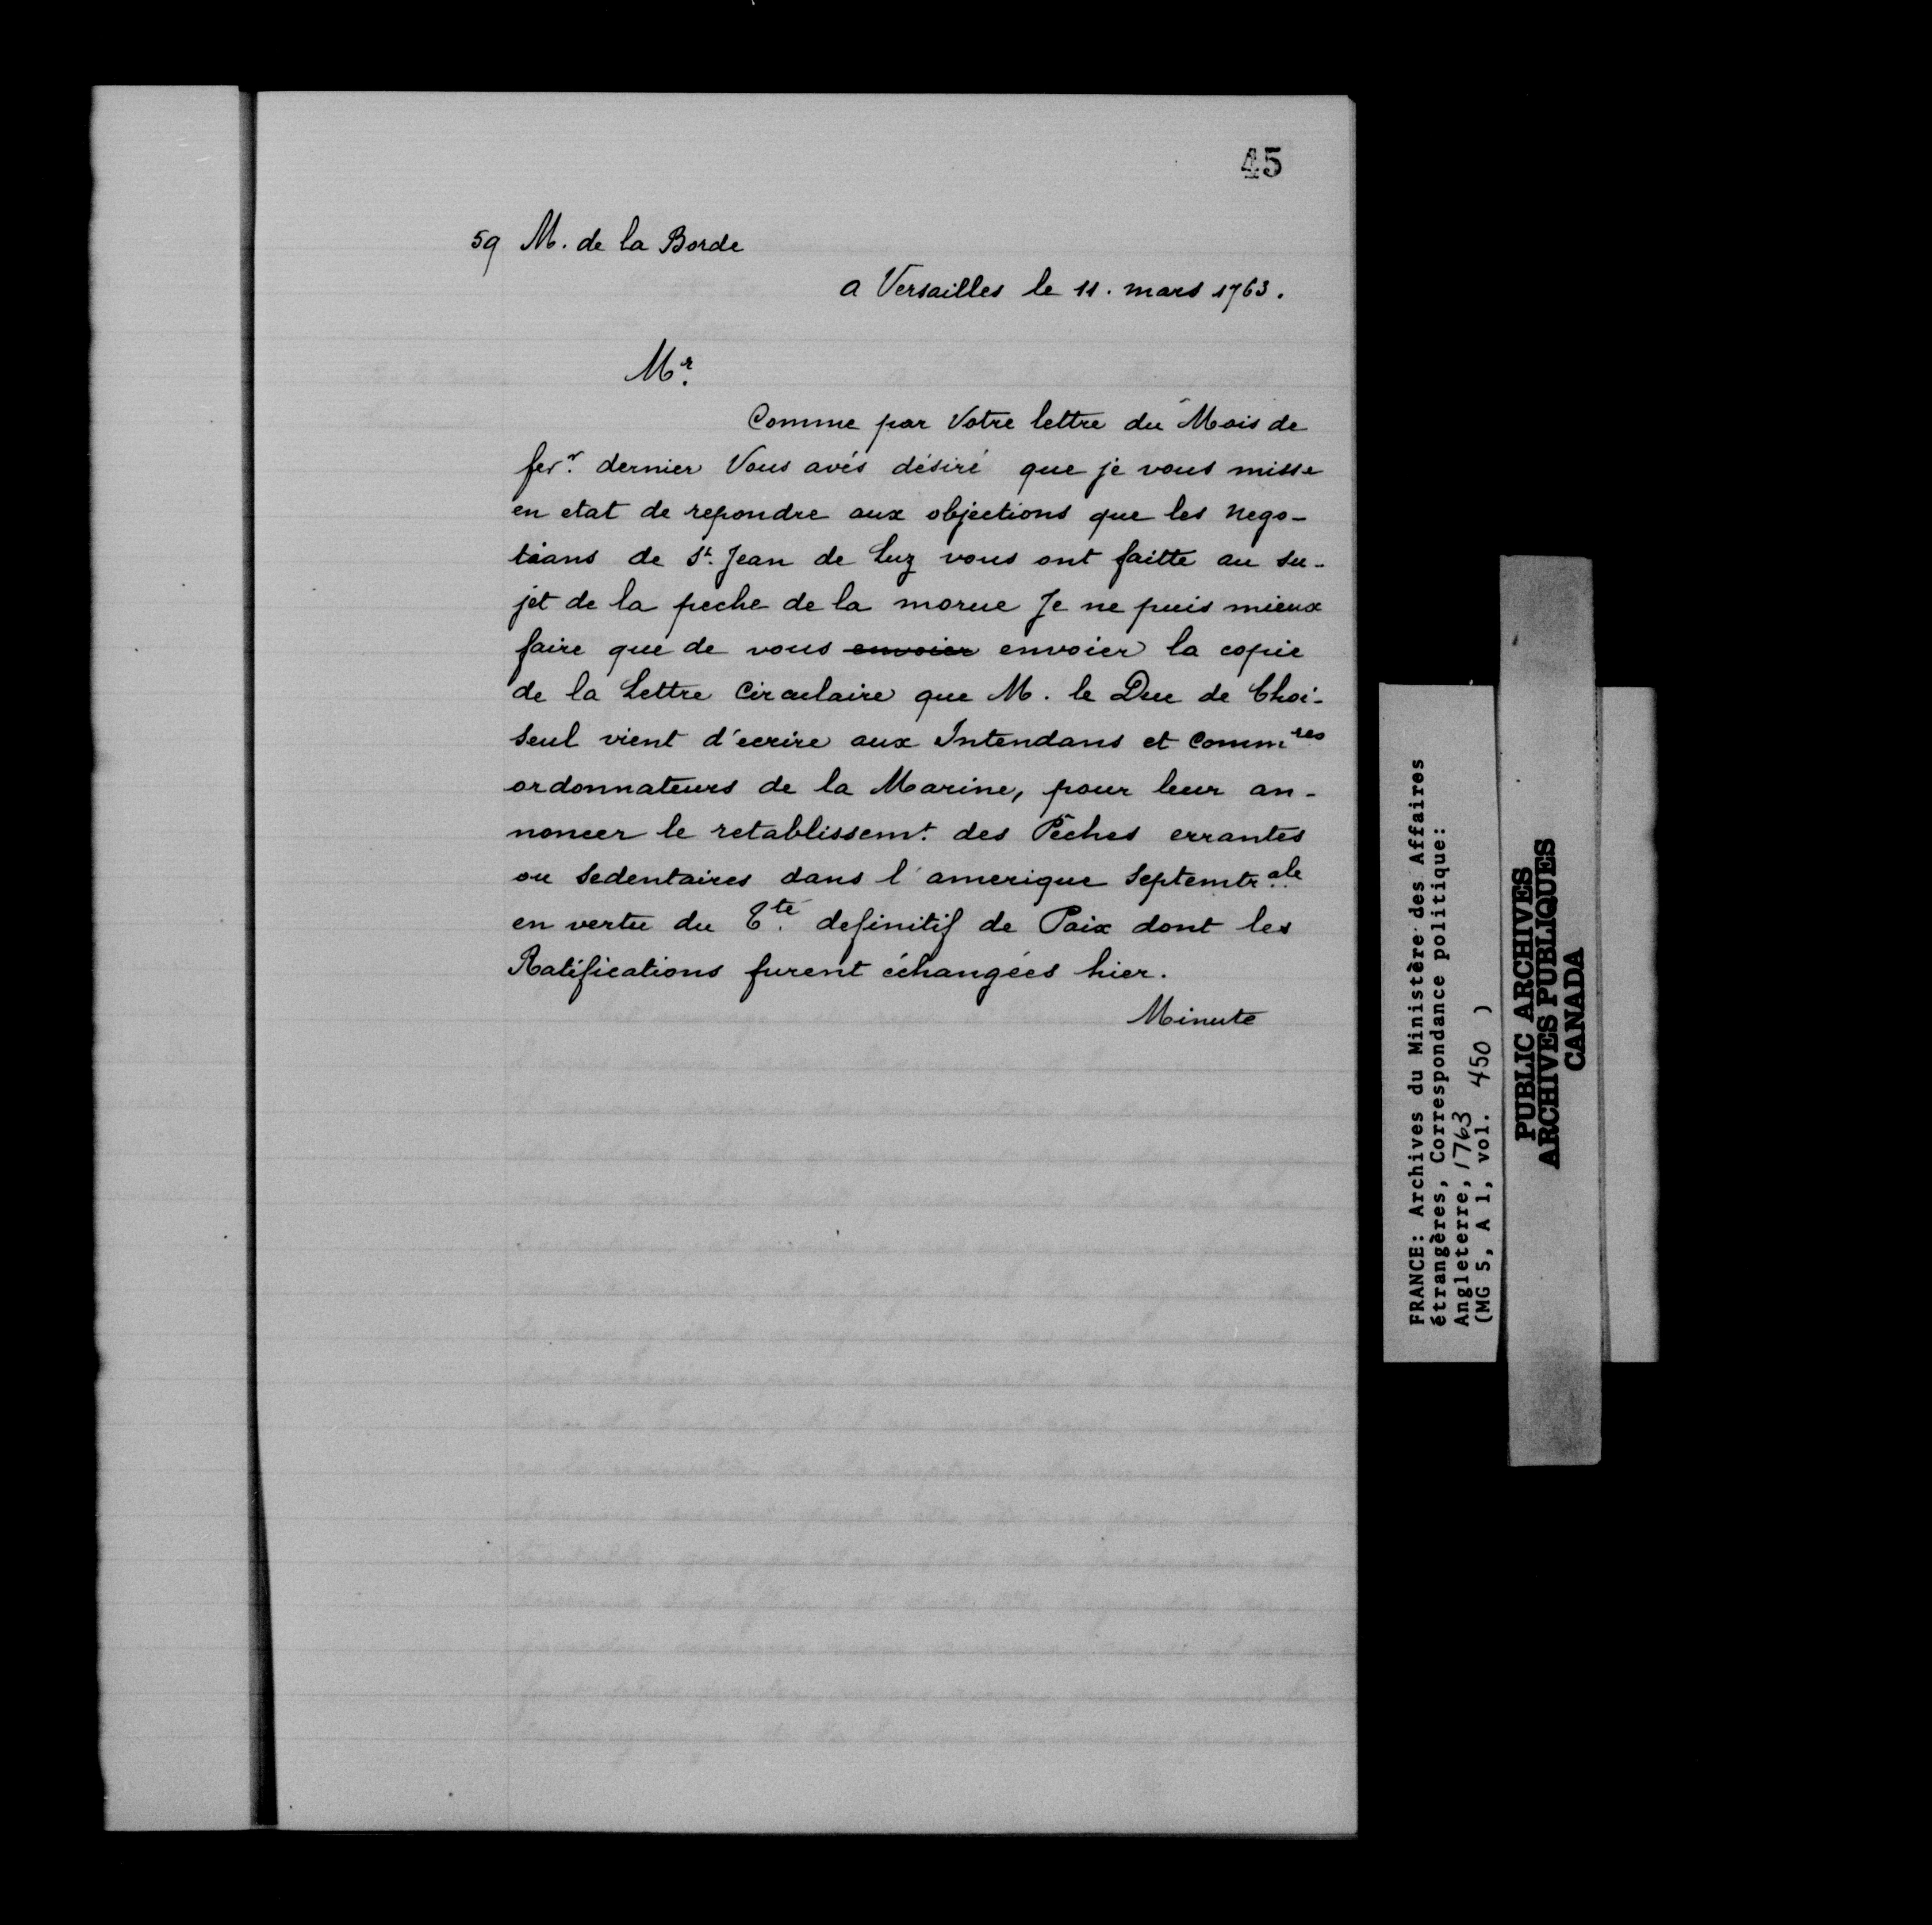 45
59 M. de la Borde
a Versailles le 11. mars 1763.
Mr.
Comme par Votre lettre du Mois de
fevr. dernier Vous avés désiré que je vous misse
en etat de repondre aux objections que les nego-
tians de St. Jean de Luz vous ont faitte au su-
jet de la peche de la morue Je ne puis mieux
faire que de vous envoier envoier la copie
de la Lettre Circulaire que M. le Duc de Choi-
seul vient d'ecrire aux Intendans et Commres
ordonnateurs de la Marine, pour leur an-
noncer le retablissemt. des Pêches errantes
ou sedentaires dans l'amerique Septemtrale
en vertu du Tté. definitif de Paix dont les
Ratifications furent échangées hier.
Minute
FRANCE: Archives du Ministère des Affaires
étrangères, Correspondance politique:
Angleterre, 1763
(MG 5, A 1, vol. 450 )
PUBLIC ARCHIVES
ARCHIVES PUBLIQUES
CANADA